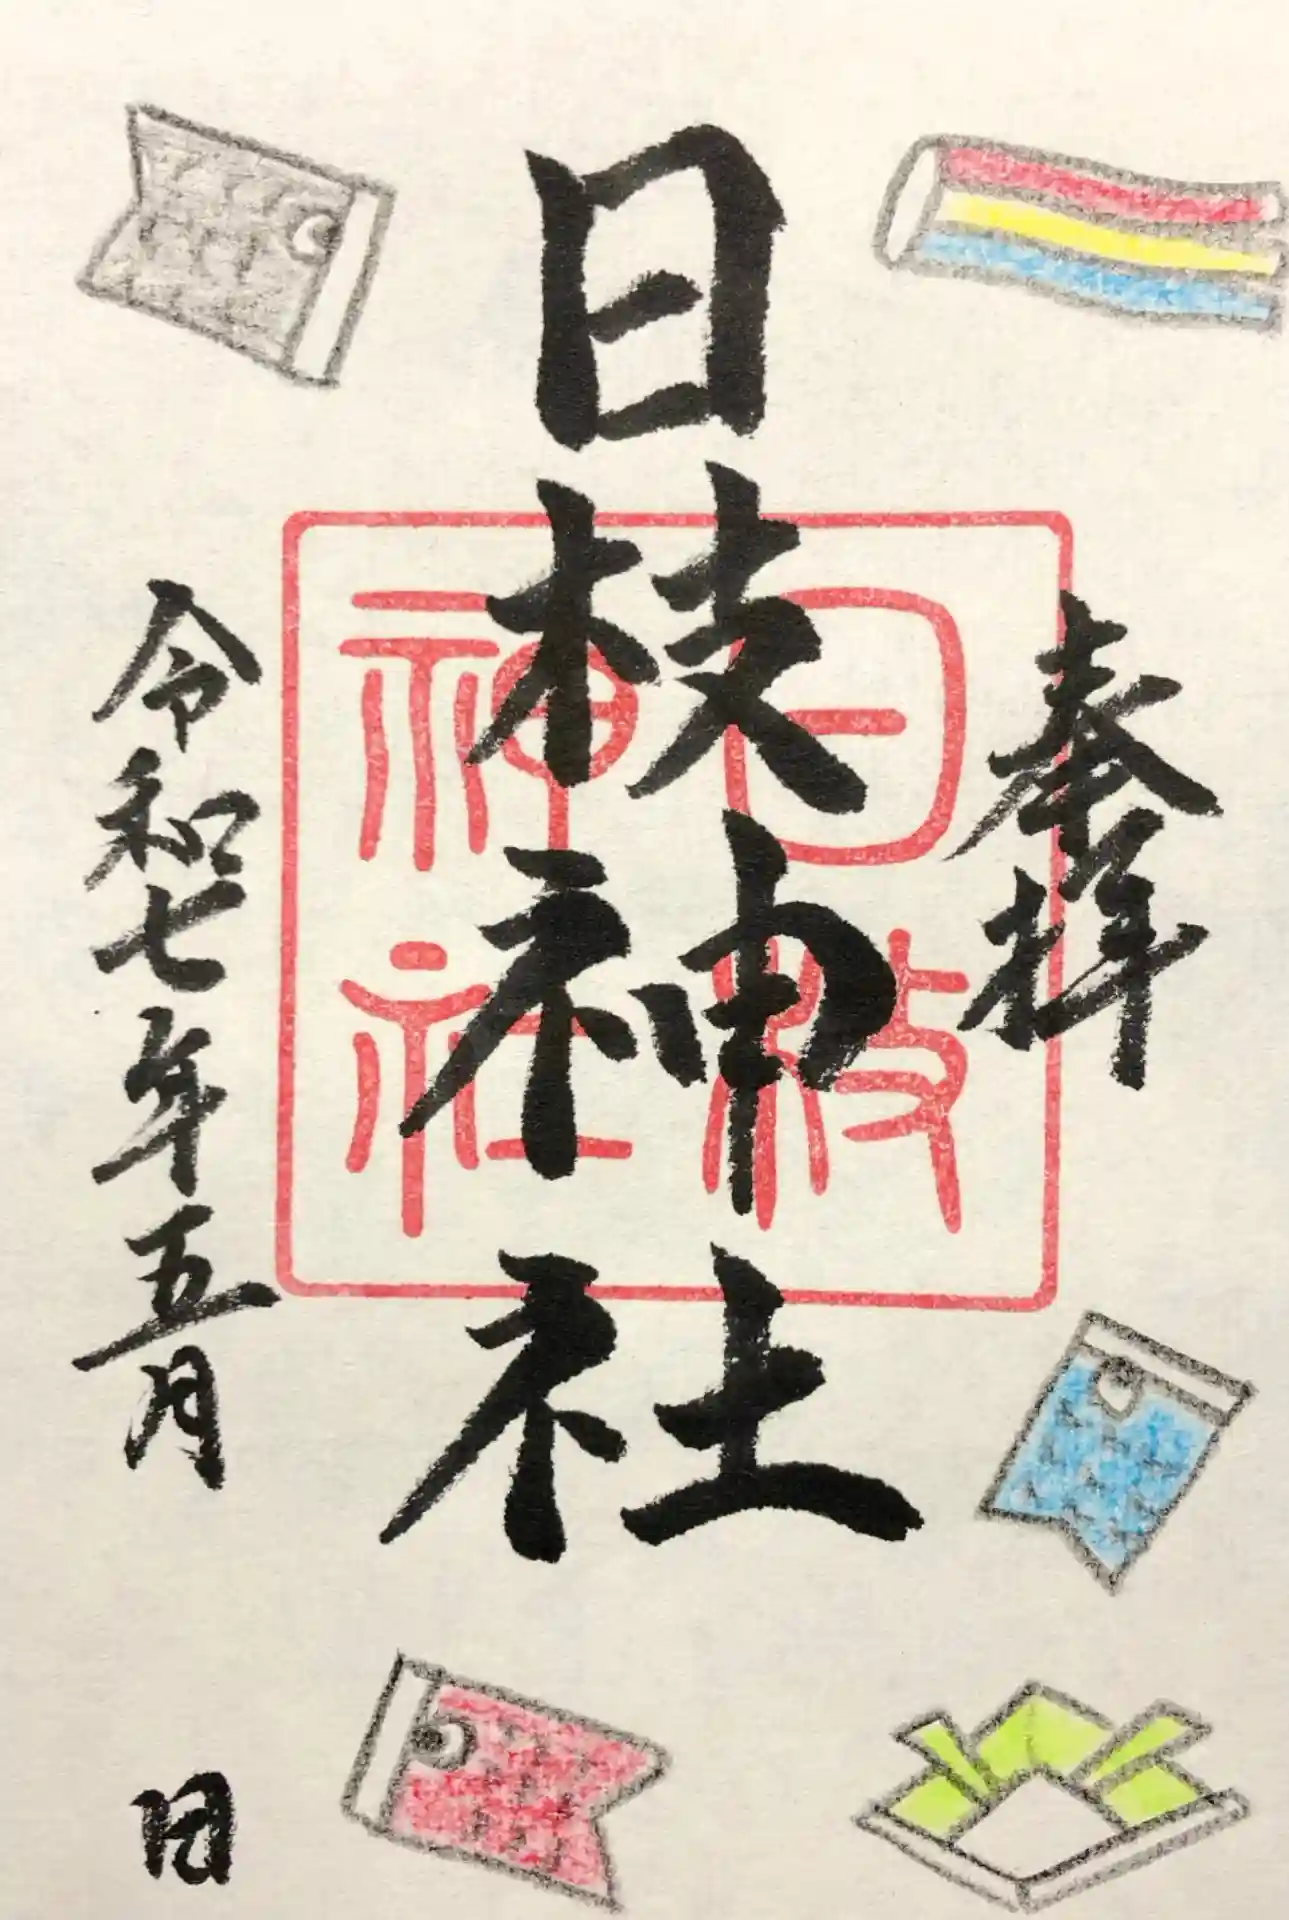 奉拝
日枝神社
日枝
神社
令和七年五月 日